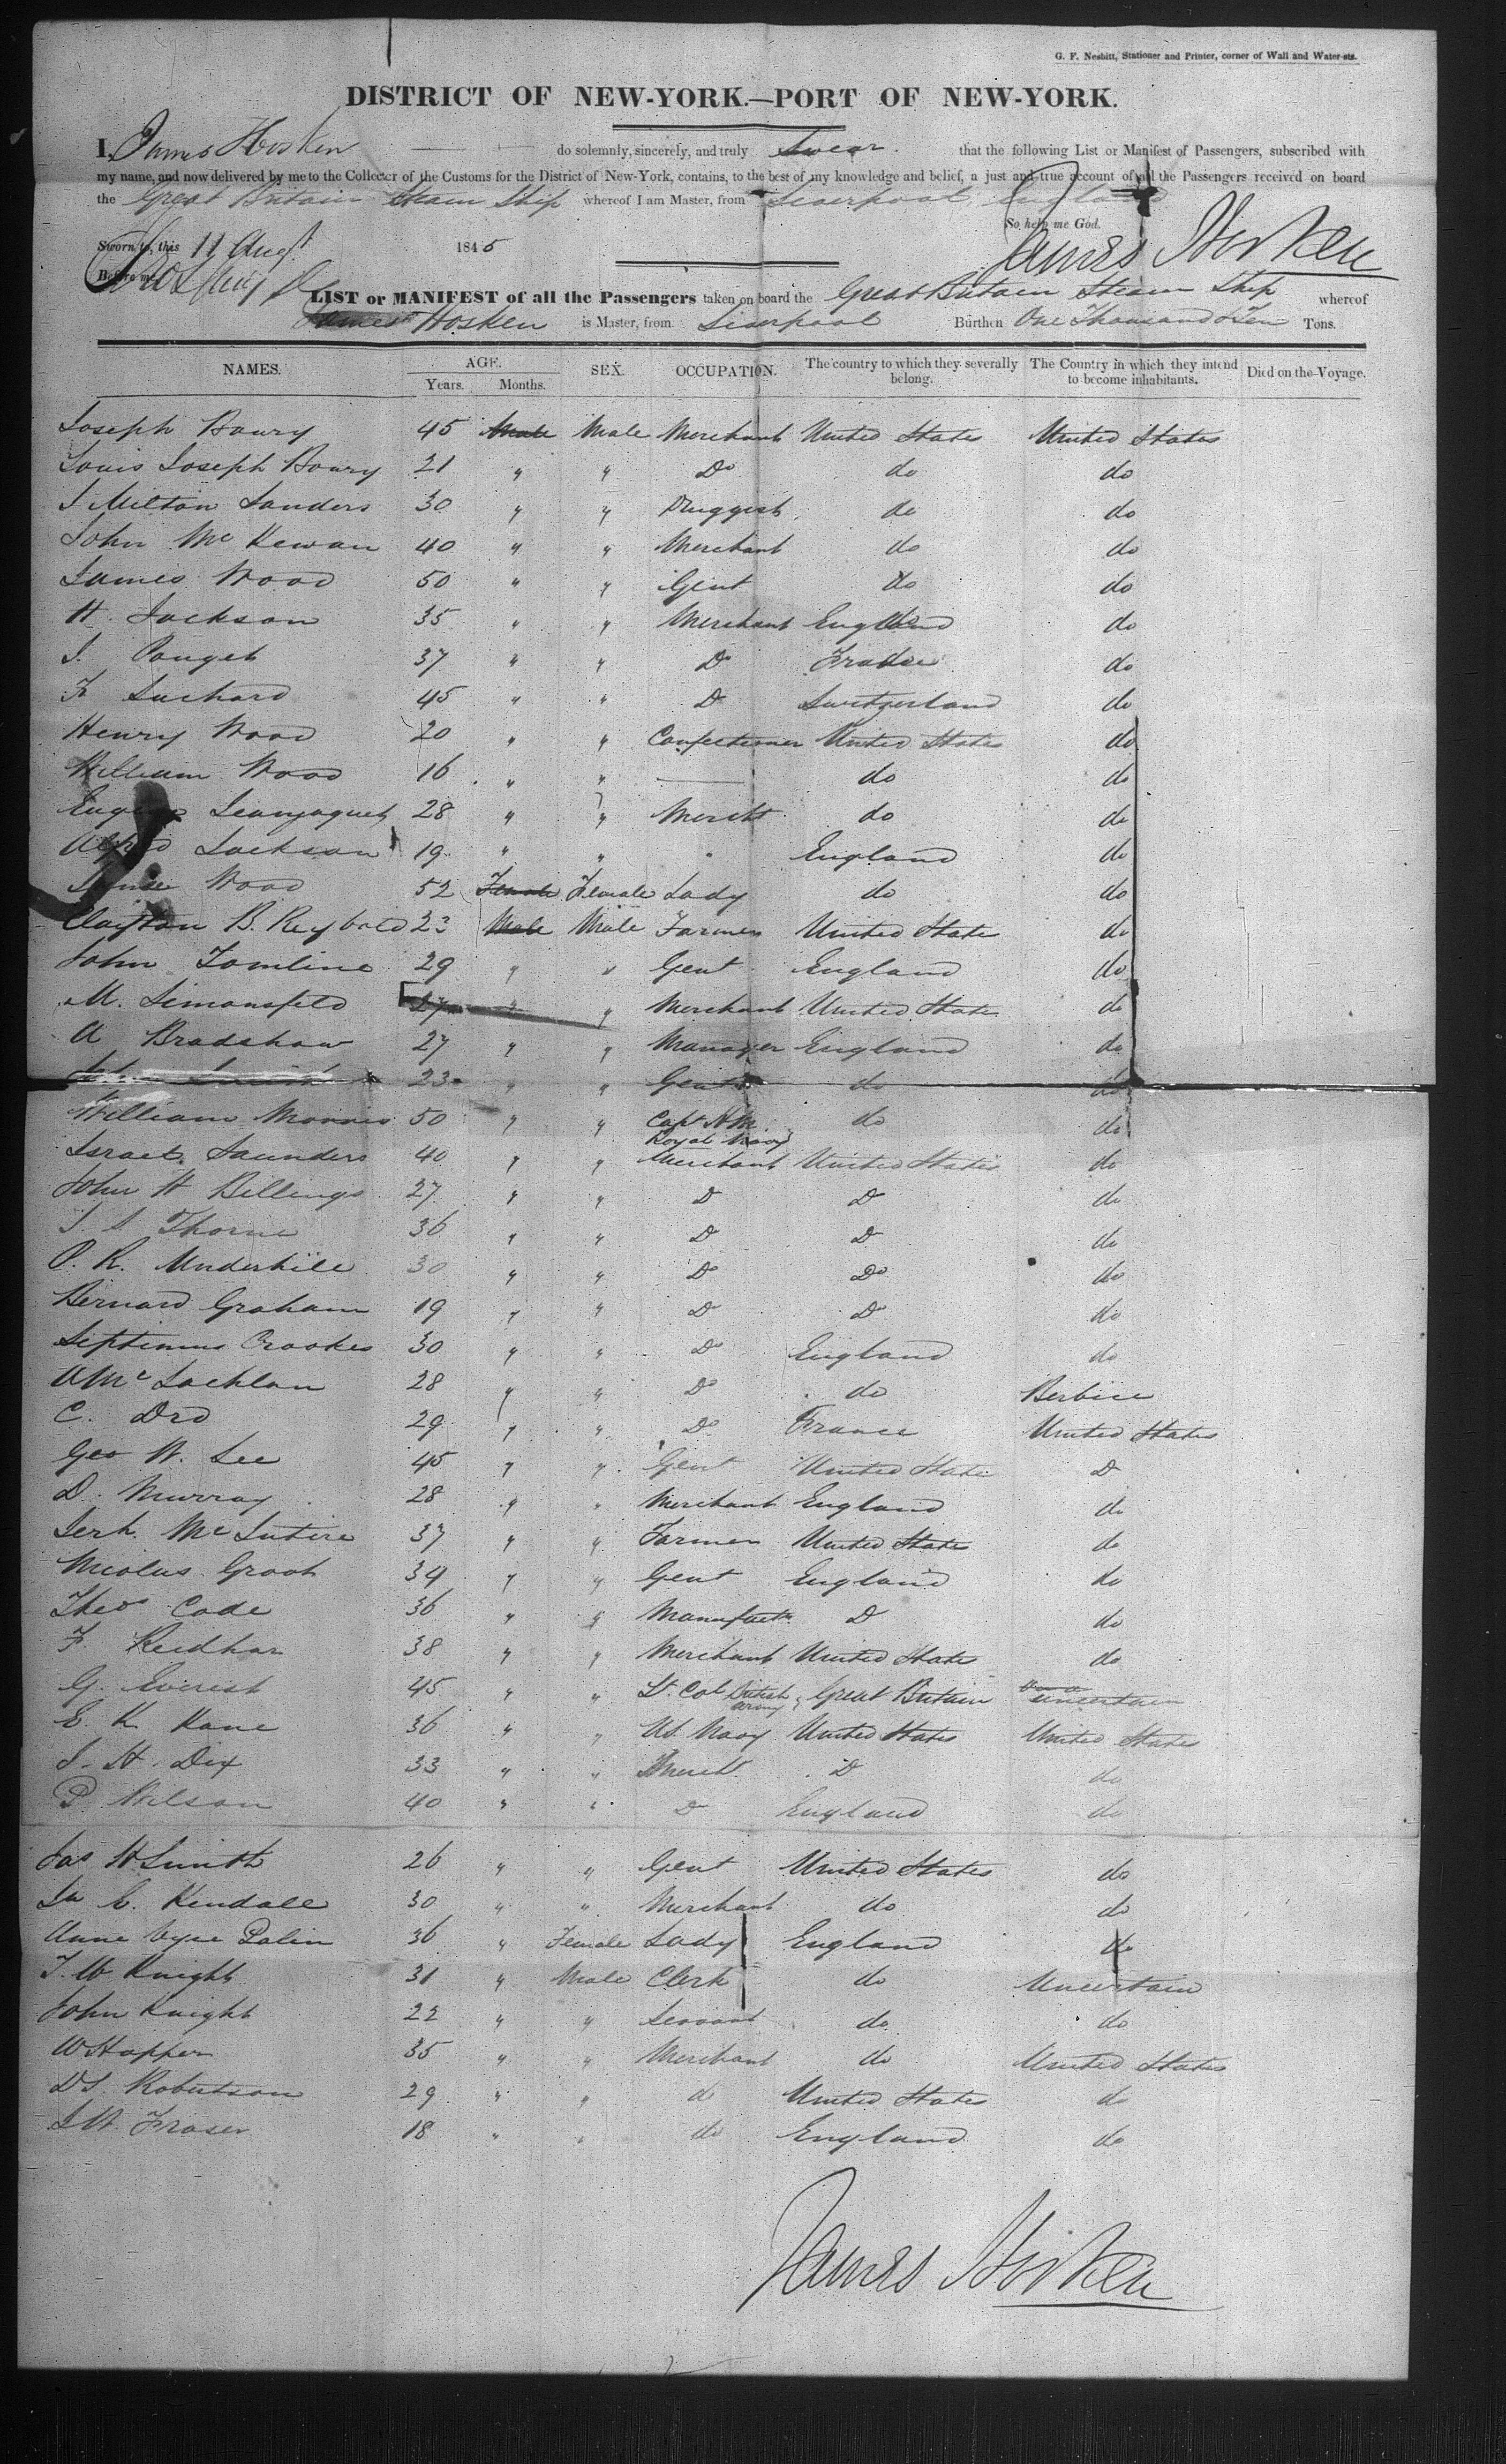 G. F. Nesbitt, Stationer and Printer, corner of Wall and Water-sts.
DISTRICT OF NEW-YORK.—PORT OF NEW-YORK.
I, James Hosken do solemnly, sincerely, and truly Swear. that the following List or Manifest of Passengers, subscribed with
my name, and now delivered by me to the Collector of the Customs for the District of New-York, contains, to the best of my knowledge and belief, a just and true account of all the Passengers received on board
the Great Britain Steam Ship whereof I am Master, from Liverpool, England
So help me God.
Sworn to, this 11 Augt 1845 James Hosken
Before me,
LIST or MANIFEST of all the Passengers taken on board the Great Britain Steam Ship whereof
James Hosken is Master, from Liverpool Burthen One Thousand & Ten Tons.
NAMES. AGE. Years. Months. SEX. OCCUPATION. The country to which they severally belong. The Country in which they intend to become inhabitants. Died on the Voyage.
Joseph Boury 45 Male Male Merchant United States United States
Louis Joseph Boury 21 " " Do do do
J Milton Sanders 30 " " Druggist do do
John McKewan 40 " " Merchant do do
James Wood 50 " " Gent do do
H. Jackson 35 " " Merchant England do
J. Pouget 37 " " Do France do
F Suchard 45 " " Do Switzerland do
Henry Wood 20 " " Confectioner United States do
William Wood 16 " " — do do
Jeanjaquet 28 " " Mercht do do
Alfred Jackson 19 " " " England do
Wood 52 Female Female Lady do do
Clayton B. Reybold 23 Male Male Farmer United State do
John Tomline 29 " " Gent England do
M. Simonsfeld 27 " " Merchant United State do
A Bradshaw 27 " " Manager England do
John Smith 23 " " Gent do do
William Morris 50 " " Capt H.M. Royal Navy do do
Israel Saunders 40 " " Merchant United States do
John H Billings 27 " " Do Do do
J. S Thorne 36 " " Do Do do
P. R. Underhill 30 " " Do Do do
Bernard Graham 19 " " Do Do do
Septimus Crookes 30 " " Do England do
A McLachlan 28 " " Do do Berbice
C. Dro 29 " " Do France United States
Geo W. Lee 45 " " Gent United State Do
D. Murray 28 " " Merchant England do
Jerh. McIntire 37 " " Farmer United State do
Nicolas Groot 34 " " Gent England do
Theos Cade 36 " " Manufactr Do do
F. 38 " " Merchant United State do
G. Everest 45 " " Lt. Col British Army Great Britain uncertain
E. K Kane 36 " " US. Navy United States United States
J. H. Dix 33 " " Mercht Do do
P Wilson 40 " " Do England do
Jas H Smith 26 " " Gent United States do
C. Kendall 30 " " Merchant do do
Anne Vyse Palin 36 " Female Lady England do
T. W Knight 31 " Male Clerk do Uncertain
John Knight 22 " " Servant do do
W Hopper 35 " " Merchant do United States
D S. Robertson 29 " " do United States do
J W. Fraser 18 " " do England do
James Hosken